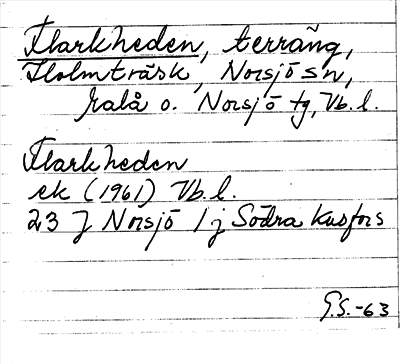 Flarkheden, terräng,
Holmträsk, Norsjö sn,
Malå o. Norsjö tg, Vb. l.
Flarkheden
ek (1961) Vb. l.
23 J Norsjö 1 j Södra Kusfors
G.S. -63